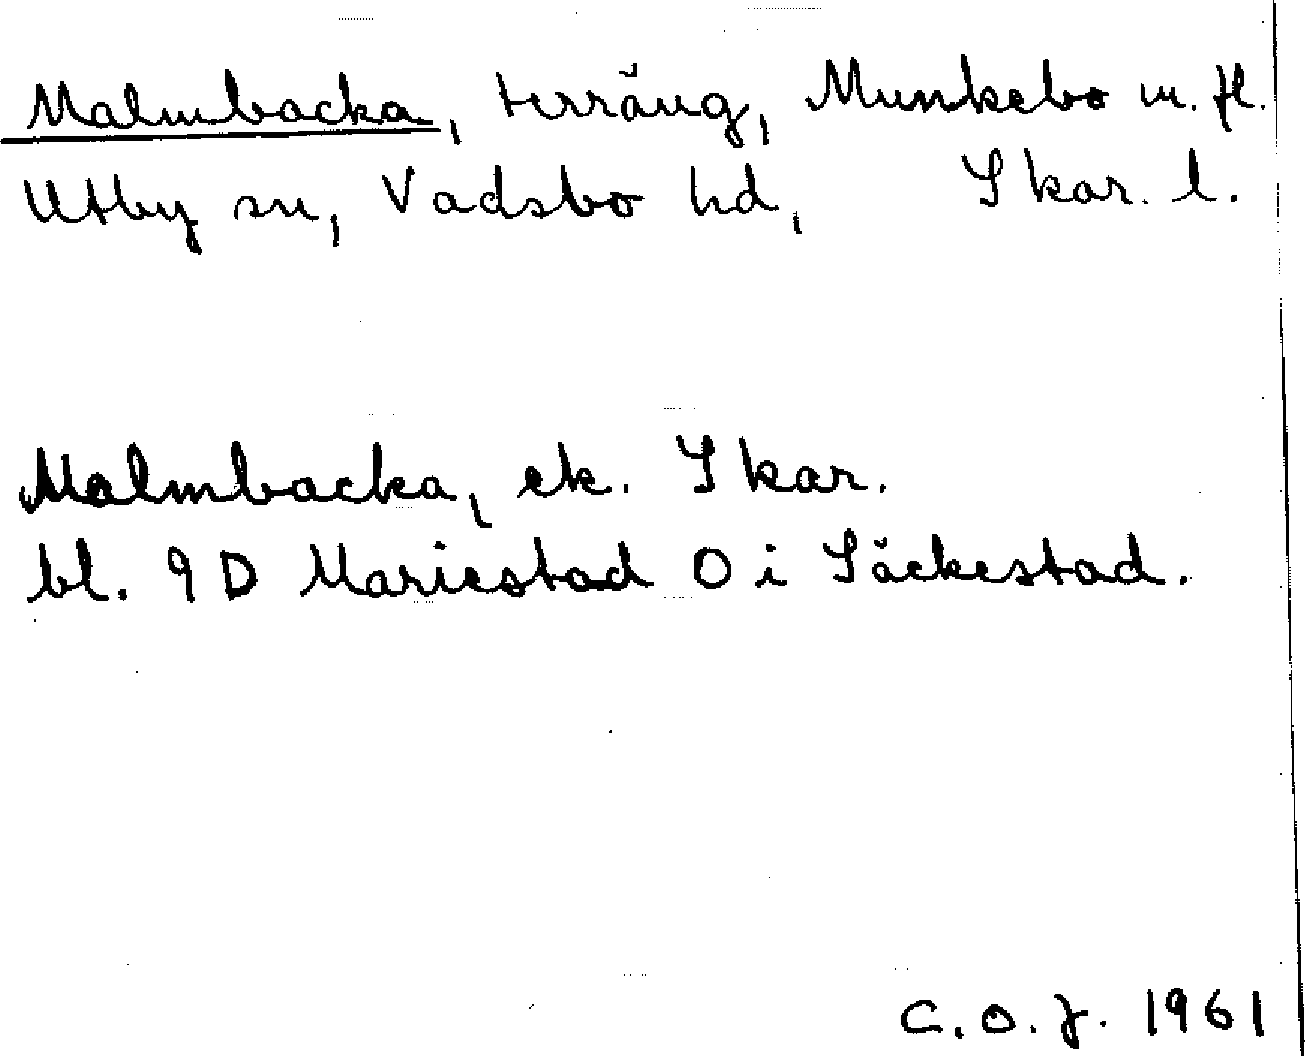 Malmbacka, terräng, Munkebo m. fl.
Utby sn, Vadsbo hd, Skar. l.
Malmbacka, ek. Skar.
bl. 9 D Mariestad O i Säckestad.
C. O. J. 1961